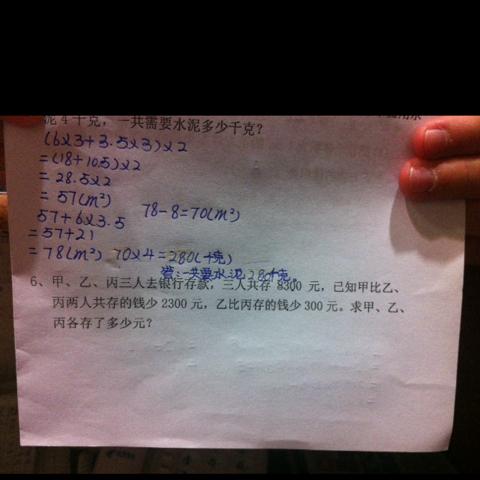 泥4千克，一共需要水泥多少千克？
(6×3+3.5×3)×2
=(18+10.5)×2
=28.5×2
=57(m²)
57+6×3.5
78-8=70(m²)
=57+21
=78(m²) 70×4=280(千克)
答:一共要水泥280千克。
6、甲、乙、丙三人去银行存款，三人共存 8300 元，已知甲比乙、
丙两人共存的钱少 2300 元，乙比丙存的钱少 300 元。求甲、乙、
丙各存了多少元？